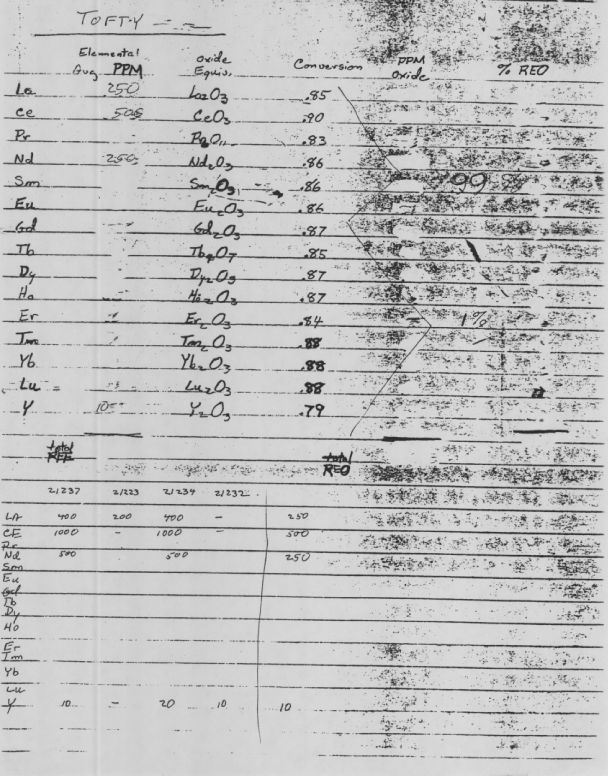 TOFTY
Elemental Avg PPM Oxide Equiv. Conversion PPM Oxide % REO
La 250 La2O3 .85
Ce 500 CeO3 .90
Pr Pr6O11 .83
Nd 250 Nd2O3 .86
Sm Sm2O3 .86 99%
Eu Eu2O3 .86
Gd Gd2O3 .87
Tb Tb4O7 .85
Dy Dy2O3 .87
Ho Ho2O3 .87
Er Er2O3 .84 1%
Tm Tm2O3 .88
Yb Yb2O3 .88
Lu Lu2O3 .88
Y 10 Y2O3 .79
total REE total REO
21237 21223 21234 21232
LA 400 200 400 - 250
CE 1000 - 1000 - 500
Pr
Nd 500 500 250
Sm
Eu
Gd
Tb
Dy
Ho
Er
Tm
Yb
Lu
Y 10 - 20 10 10